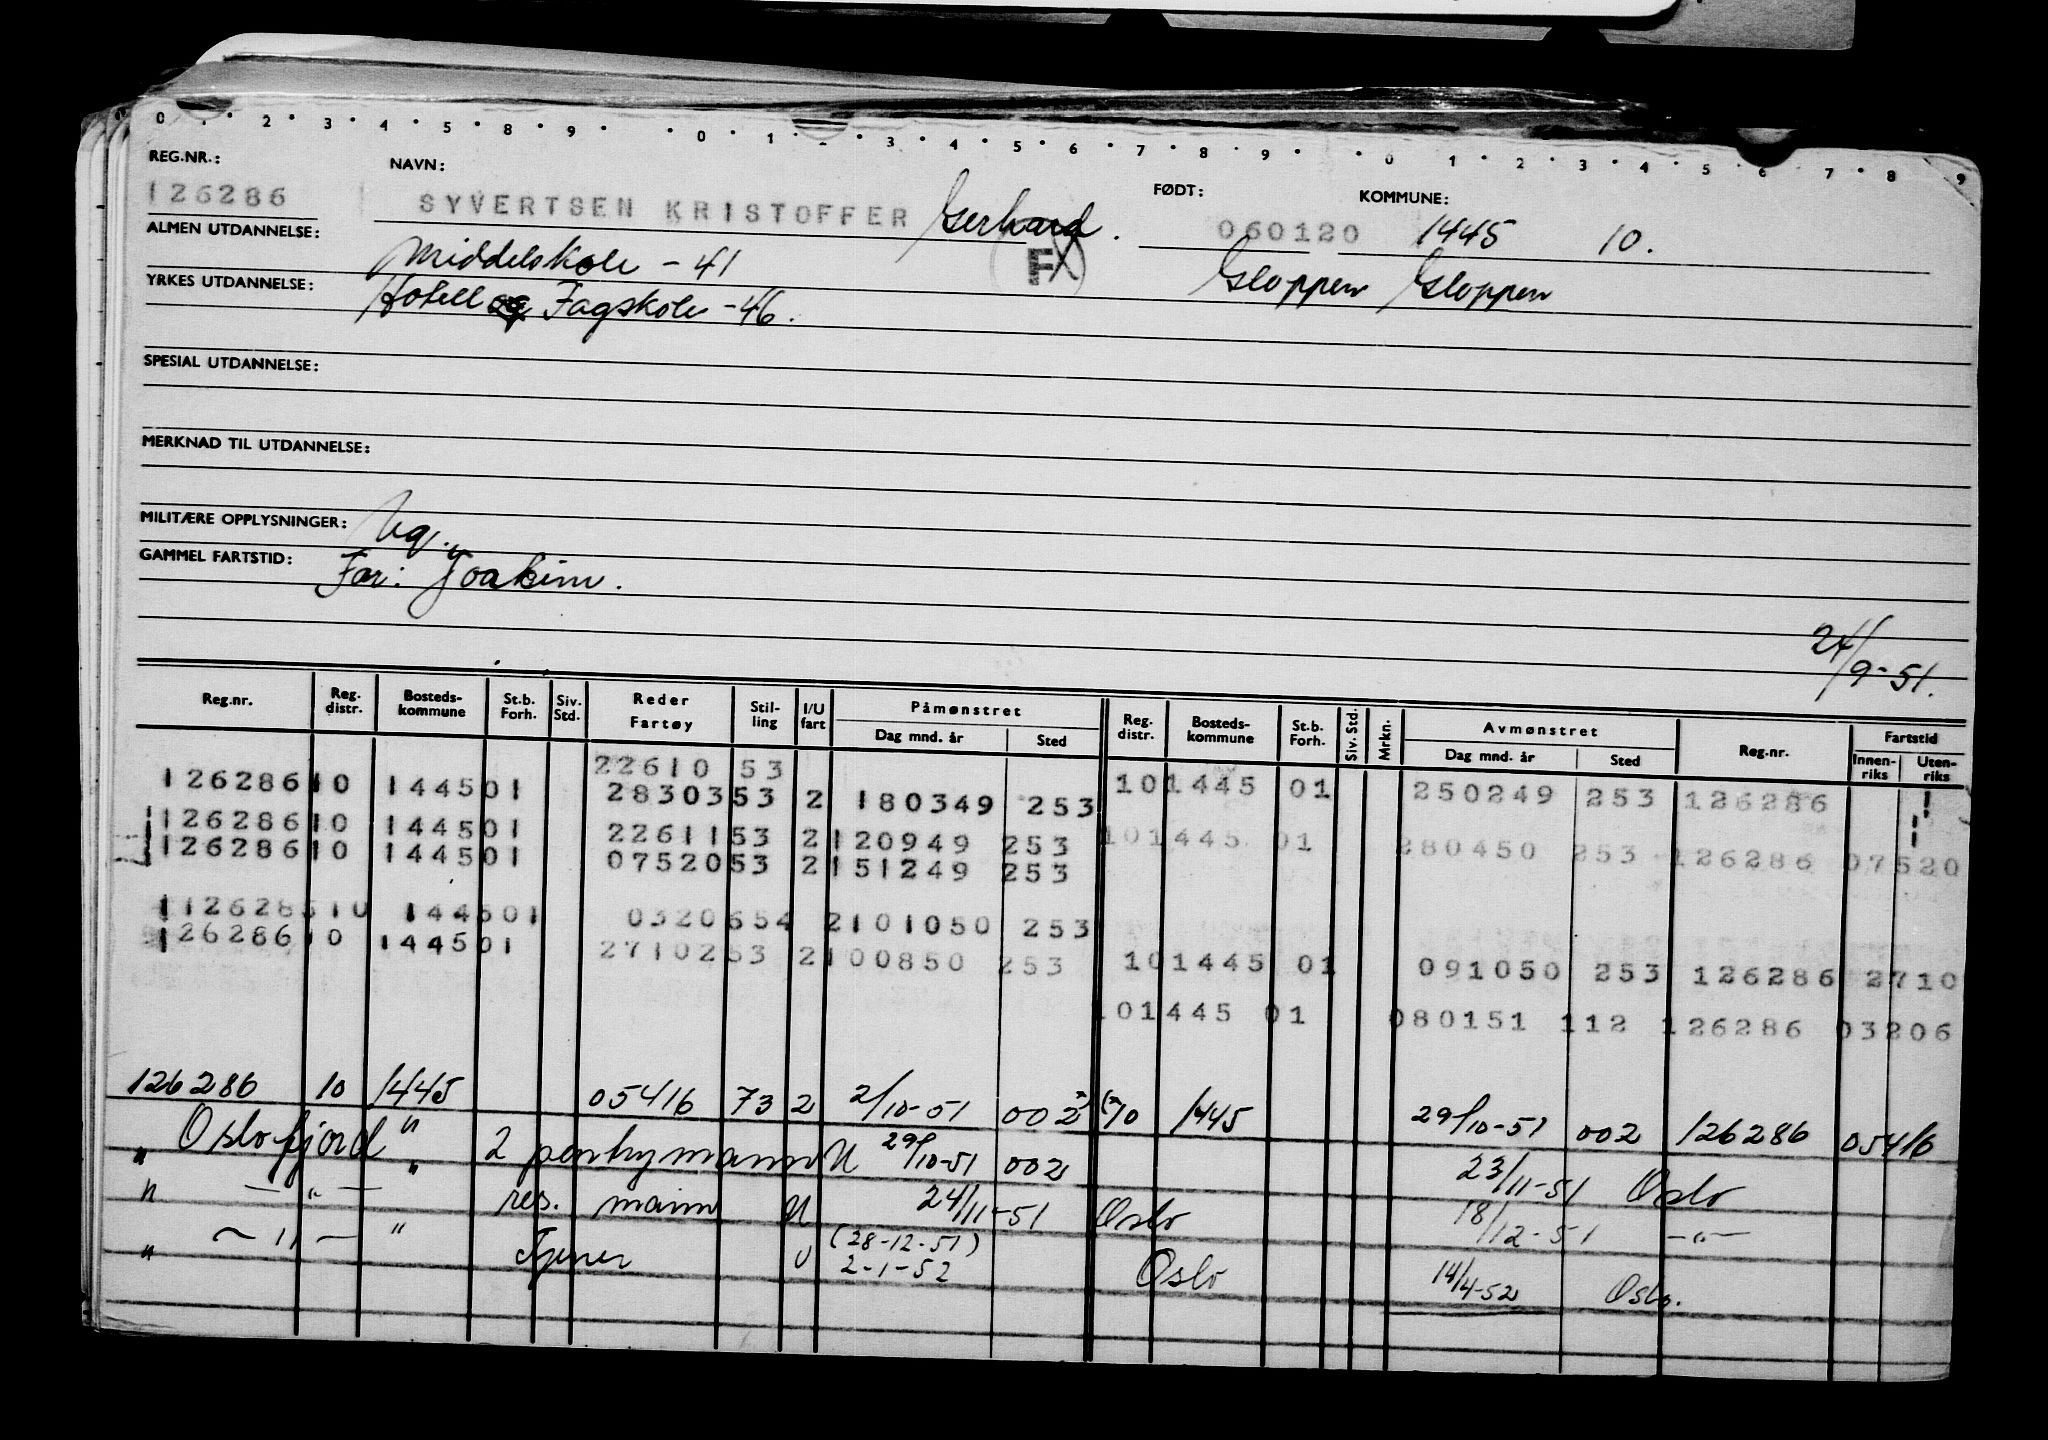 0 . . 2 . 3 . 4 . 5 . 8 . 9 . . 0 . 1 . . 3 . 4 . 5 . 6 . 7 . 8 . 9 . . 0 1 . 2 . 3 . 4 . 5 . 6 . 7 . 8 . 9
REG.NR.: NAVN: FØDT: KOMMUNE:
126286 SYVERTSEN KRISTOFFER Gerhard. 060120 1445 10.
ALMEN UTDANNELSE: Middelskole - 41 F Gloppen Gloppen
YRKES UTDANNELSE: Hotell og Fagskole - 46.
SPESIAL UTDANNELSE:
MERKNAD TIL UTDANNELSE:
MILITÆRE OPPLYSNINGER: Uq.
GAMMEL FARTSTID: Far: Joakim.
24/9-51.
Reg.nr. Reg. distr. Bosteds-kommune St.b. Forh. Siv. Std. Reder Fartøy Stil-ling I/U fart Påmønstret Dag mnd. år Sted Reg. distr. Bosteds-kommune St.b. Forh. Siv. Std. Mrkn. Avmønstret Dag mnd. år Sted Reg.nr. Fartstid Innen-riks Uten-riks
22610 53
126286 10 1445 01 28303 53 2 180349 253 10 1445 01 250249 253 126286
126286 10 1445 01 22611 53 2 120949 253 10 1445 01 280450 253 126286 07520
126286 10 1445 01 07520 53 2 151249 253
126286 10 1445 01 03206 54 2 101050 253
126286 10 1445 01 27102 53 2 100850 253 10 1445 01 091050 253 126286 2710
10 1445 01 080151 112 126286 03206
126286 10 1445 05416 73 2 2/10-51 002 10 1445 29/10-51 002 126286 05416
" Oslofjord " 2 pantrymann U 29/10-51 002 23/11-51 Oslo
" — " — " res. mann U 24/11-51 Oslo 18/12-51 — " —
" — " — " Tjener U (28-12-51) 2-1-52 Oslo 14/4-52 Oslo.